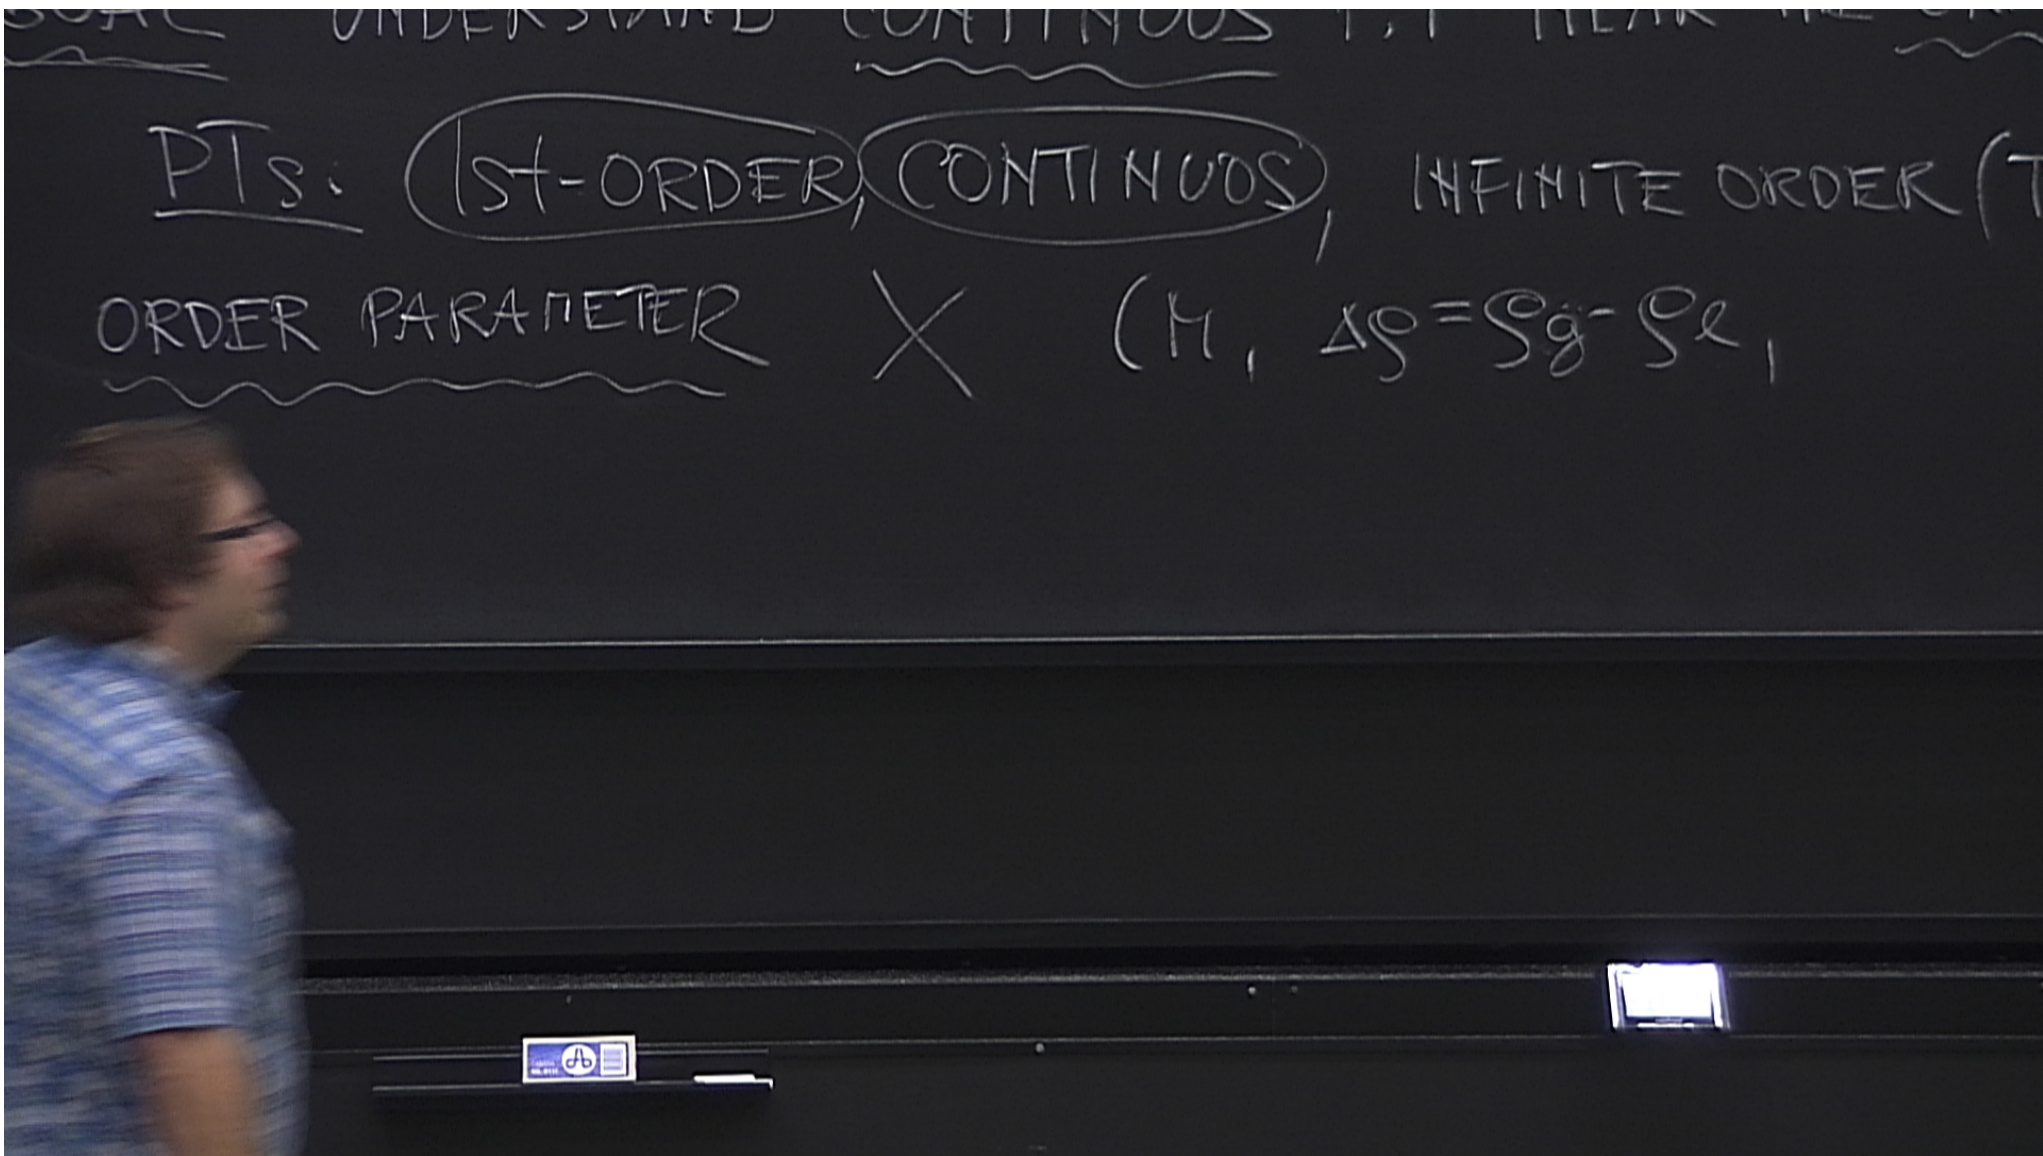 GOAL UNDERSTAND CONTINUOS P.T NEAR THE
PTs: 1st-ORDER, CONTINUOS, INFINITE ORDER (T
ORDER PARAMETER X (M, Δρ=ρg-ρl,